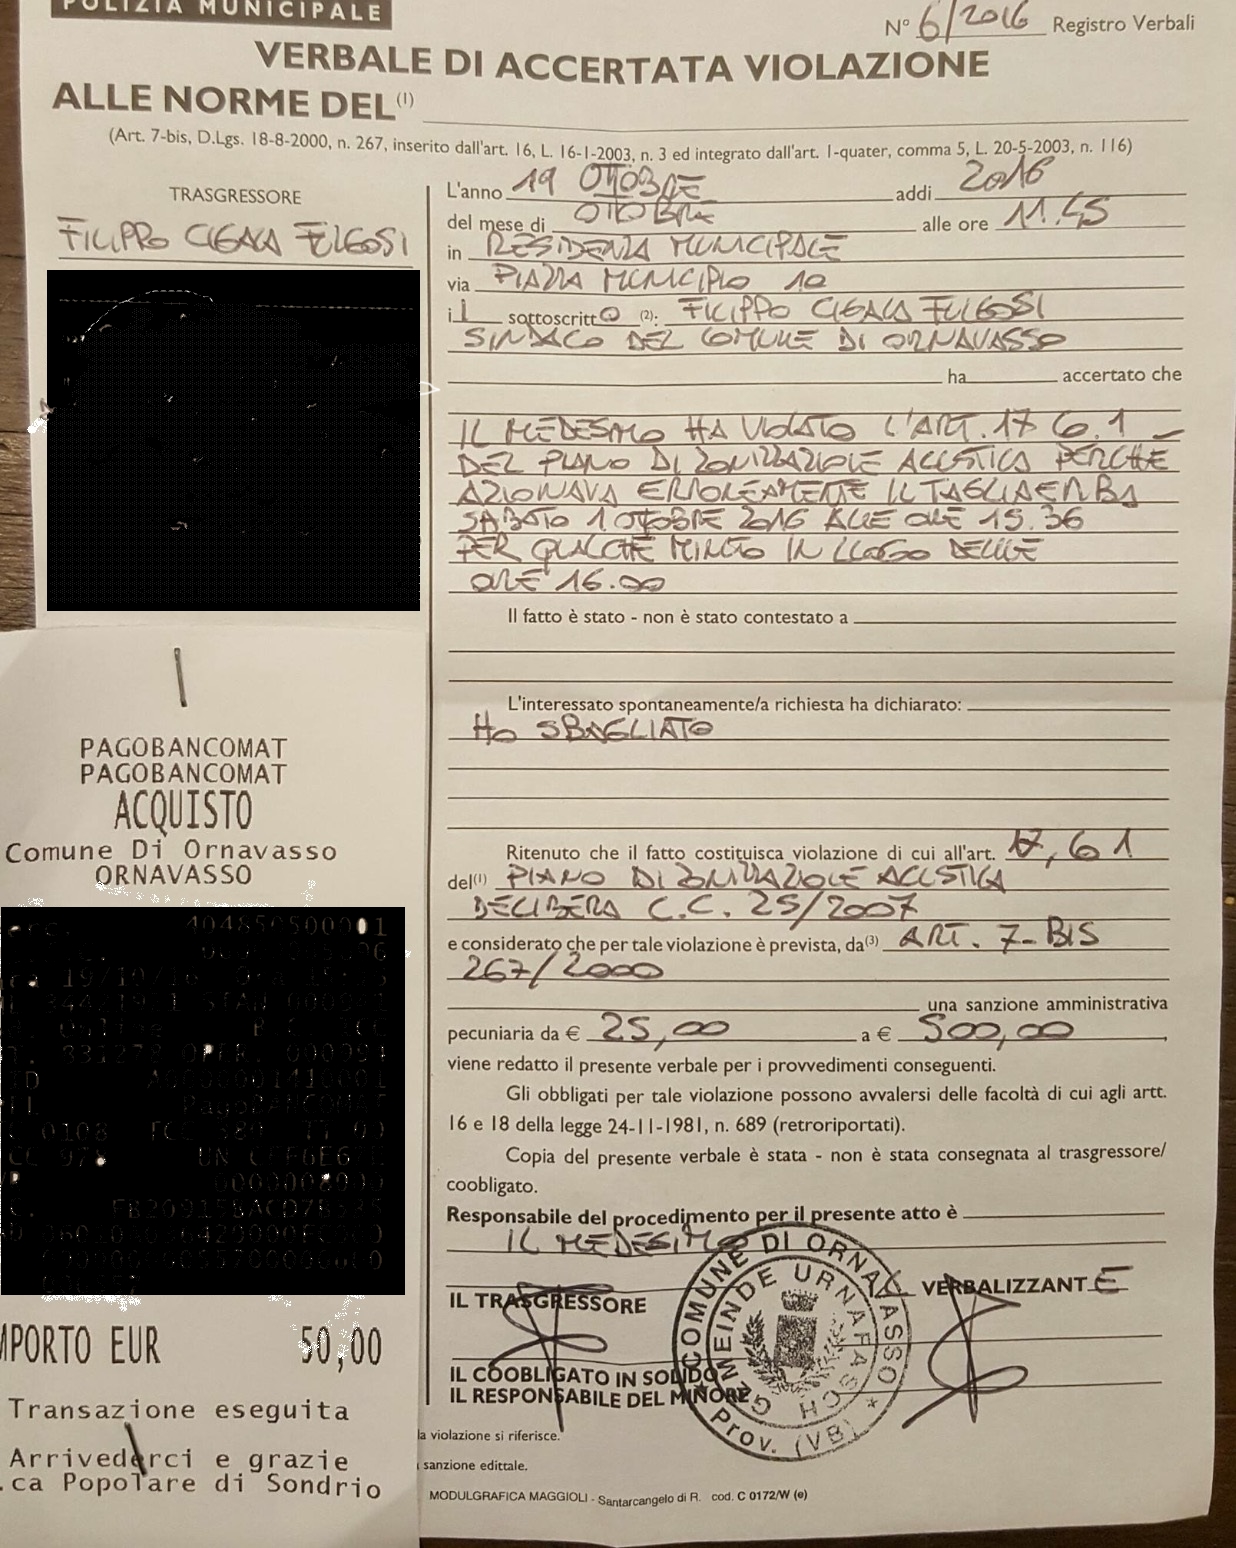 POLIZIA MUNICIPALE
N° 6/2016 Registro Verbali
VERBALE DI ACCERTATA VIOLAZIONE
ALLE NORME DEL (1)
(Art. 7-bis, D.Lgs. 18-8-2000, n. 267, inserito dall'art. 16, L. 16-1-2003, n. 3 ed integrato dall'art. 1-quater, comma 5, L. 20-5-2003, n. 116)
TRASGRESSORE
FILIPPO CIGALA FULGOSI
L'anno 19 OTTOBRE addi 2016
del mese di OTTOBRE alle ore 11.45
in RESIDENZA MUNICIPALE
via PIAZZA MUNICIPIO 10
il sottoscritto (2): FILIPPO CIGALA FULGOSI
SINDACO DEL COMUNE DI ORNAVASSO
ha accertato che
IL MEDESIMO HA VIOLATO L'ART. 17 6.1
DEL PIANO DI ZONIZZAZIONE ACUSTICA PERCHE
AZIONAVA ERRONEAMENTE IL TAGLIAERBA
SABATO 1 OTTOBRE 2016 ALLE ORE 15.36
PER QUALCHE MINUTO IN LUOGO DELLE
ORE 16.00
Il fatto è stato - non è stato contestato a
L'interessato spontaneamente/a richiesta ha dichiarato:
HO SBAGLIATO
Ritenuto che il fatto costituisca violazione di cui all'art. 17, 6 1
del(1) PIANO DI ZONIZZAZIONE ACUSTICA
DELIBERA C.C. 25/2007
e considerato che per tale violazione è prevista, da(3) ART. 7-BIS
267/2000
una sanzione amministrativa
pecuniaria da € 25,00 a € 500,00,
viene redatto il presente verbale per i provvedimenti conseguenti.
Gli obbligati per tale violazione possono avvalersi delle facoltà di cui agli artt.
16 e 18 della legge 24-11-1981, n. 689 (retroriportati).
Copia del presente verbale è stata - non è stata consegnata al trasgressore/
coobligato.
Responsabile del procedimento per il presente atto è
IL MEDESIMO
IL TRASGRESSORE
VERBALIZZANTE
IL COOBLIGATO IN SOLIDO
IL RESPONSABILE DEL MINORE
COMUNE DI ORNAVASSO * Prov. (VB)
GEMEINDE URNAFASCH
la violazione si riferisce.
sanzione edittale.
MODULGRAFICA MAGGIOLI - Santarcangelo di R. cod. C 0172/W (e)
PAGOBANCOMAT
PAGOBANCOMAT
ACQUISTO
Comune Di Ornavasso
ORNAVASSO
MPORTO EUR 50,00
Transazione eseguita
Arrivederci e grazie
.ca Popolare di Sondrio